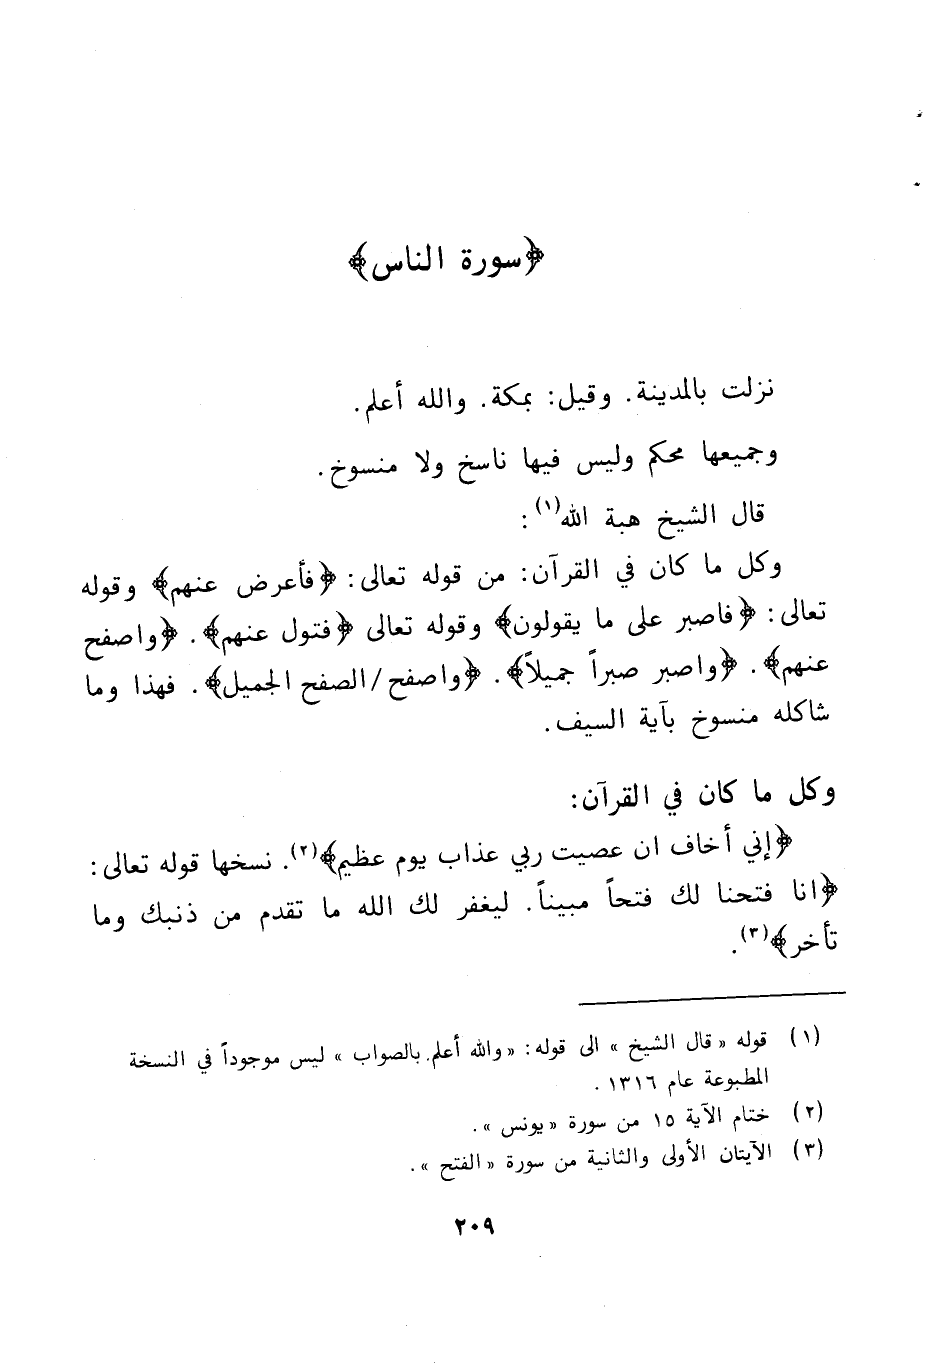 ﴿سورة الناس﴾
نزلت بالمدينة. وقيل: بمكة. والله أعلم.
وجميعها محكم وليس فيها ناسخ ولا منسوخ.
قال الشيخ هبة الله(١):
وكل ما كان في القرآن: من قوله تعالى: ﴿فأعرض عنهم﴾ وقوله
تعالى: ﴿فاصبر على ما يقولون﴾ وقوله تعالى ﴿فتول عنهم﴾. ﴿واصفح
عنهم﴾. ﴿واصبر صبراً جميلاً﴾. ﴿واصفح/الصفح الجميل﴾. فهذا وما
شاكله منسوخ بآية السيف.
وكل ما كان في القرآن:
﴿إني أخاف ان عصيت ربي عذاب يوم عظيم﴾(٢). نسخها قوله تعالى:
﴿انا فتحنا لك فتحاً مبيناً. ليغفر لك الله ما تقدم من ذنبك وما
تأخر﴾(٣).
(١) قوله «قال الشيخ» الى قوله: «والله أعلم بالصواب» ليس موجوداً في النسخة
المطبوعة عام ١٣١٦.
(٢) ختام الآية ١٥ من سورة «يونس».
(٣) الآيتان الأولى والثانية من سورة «الفتح».
٢٠٩